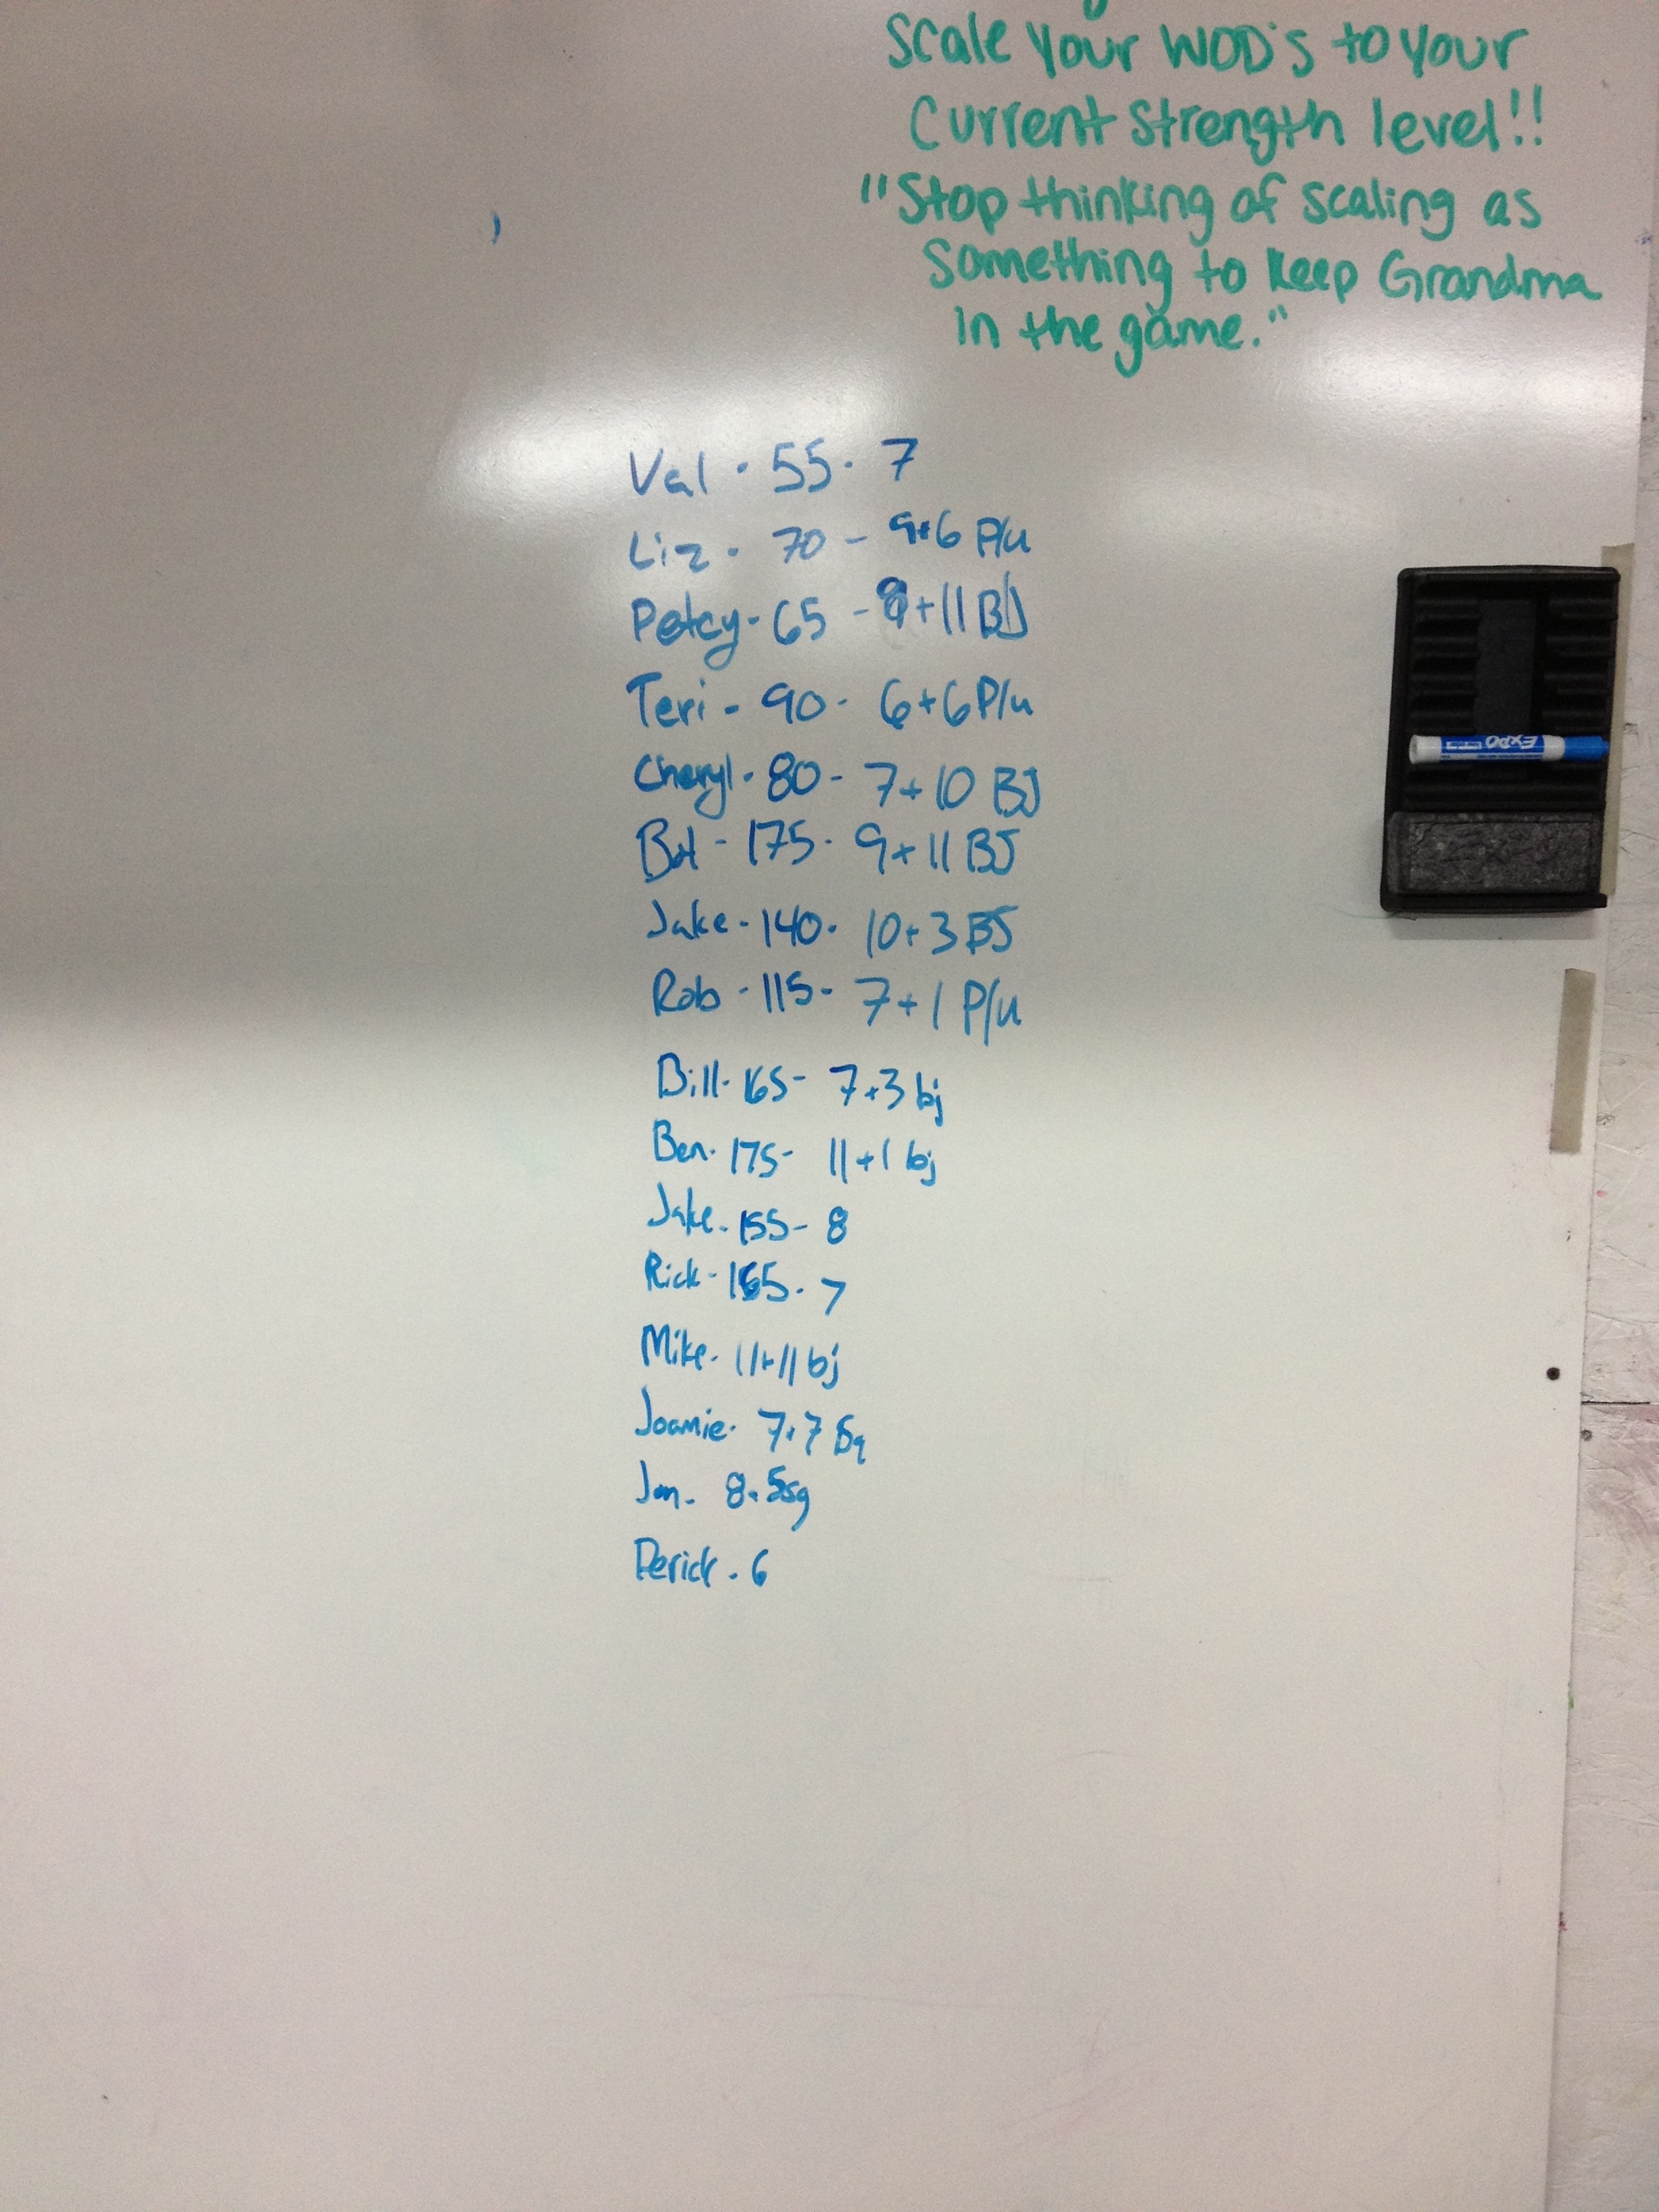 Scale your WOD's to your
Current Strength level!!
"Stop thinking of scaling as
Something to keep Grandma
in the game."
Val - 55 - 7
Liz - 70 - 9+6 P/u
65 - +11 BJ
Teri - 90 - 6+6 P/u
Cheryl - 80 - 7+10 BJ
175 - 9+11 BJ
Jake - 140 - 10+3 BJ
Rob - 115 - 7+1 P/u
Bill - 165 - 7+3 bj
Ben - 175 - 11+1 bj
Jake - 155 - 8
Rick - 165 - 7
Mike - 11+11 bj
Joamie - 7+7 Sq
Jon - 8+5sq
Derick - 6
EXPO